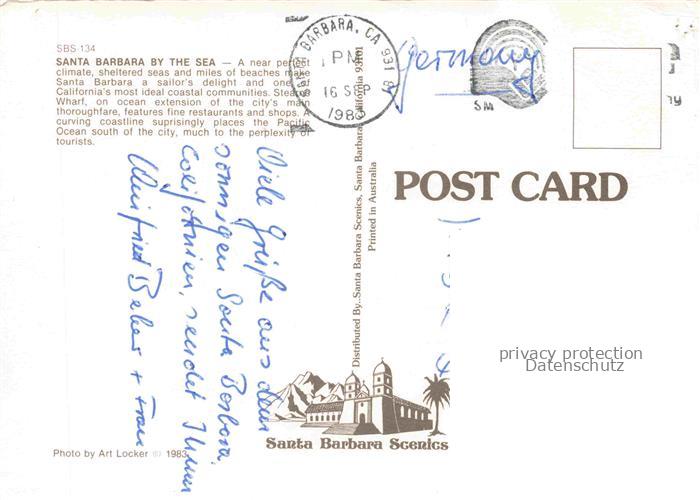 SBS 134
SANTA BARBARA BY THE SEA — A near perfect
climate, sheltered seas and miles of beaches make
Santa Barbara a sailor's delight and one of
California's most ideal coastal communities. Stearns
Wharf, on ocean extension of the city's main
thoroughfare, features fine restaurants and shops. A
curving coastline suprisingly places the Pacific
Ocean south of the city, much to the perplexity of
tourists.
SANTA BARBARA, CA 931
PM
16 SEP
1983
Germany
SM
Viele Grüße aus dem
sonnigen Santa Barbara
Californien, sendet Ihnen
Winfried + Frau
Distributed By..Santa Barbara Scenics, Santa Barbara, California 93101
Printed in Australia
POST CARD
privacy protection
Datenschutz
Santa Barbara Scenics
Photo by Art Locker © 1983